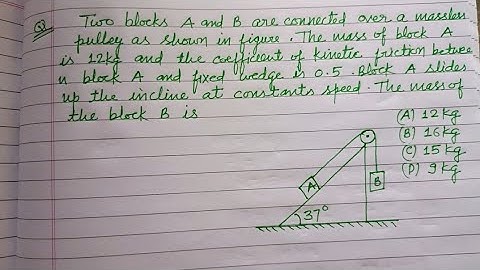 Q) Two blocks A and B are connected over a massless
pulley as shown in figure. The mass of block A
is 12kg and the coefficient of kinetic friction betwee
n block A and fixed wedge is 0.5. Block A slides
up the incline at constants speed. The mass of
the block B is
(A) 12kg
(B) 16kg
(C) 15kg
(D) 9kg
A
B
37°